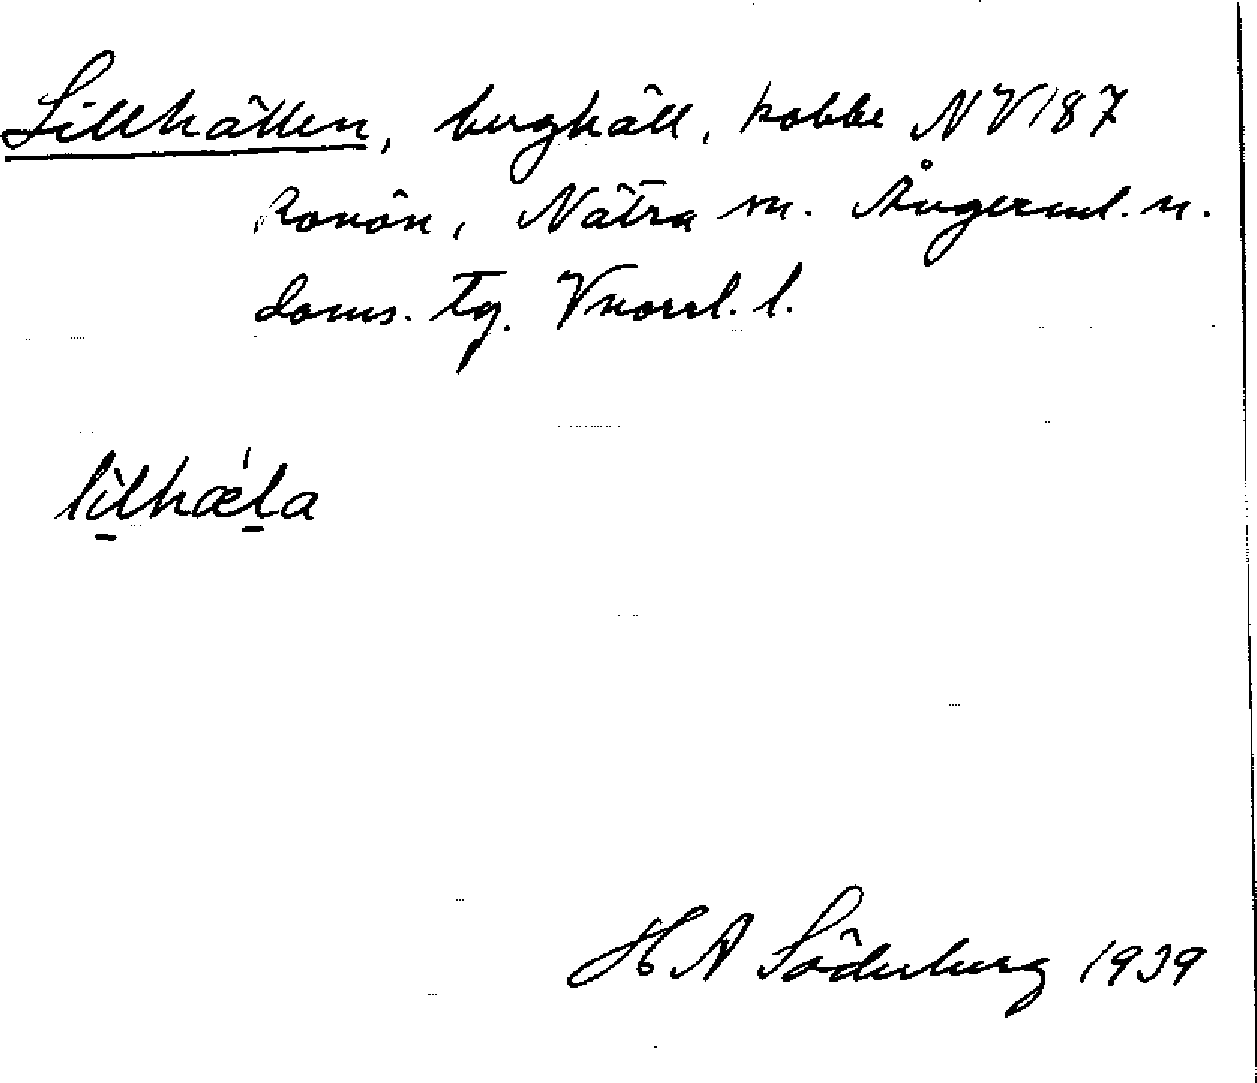 Lillhällen, berghäll, kobbe NV 187
Ronön, Nätra sn. Ångerml. n.
doms. tg. Vnorrl. l.
lìlhǽla
H A Söderberg 1939